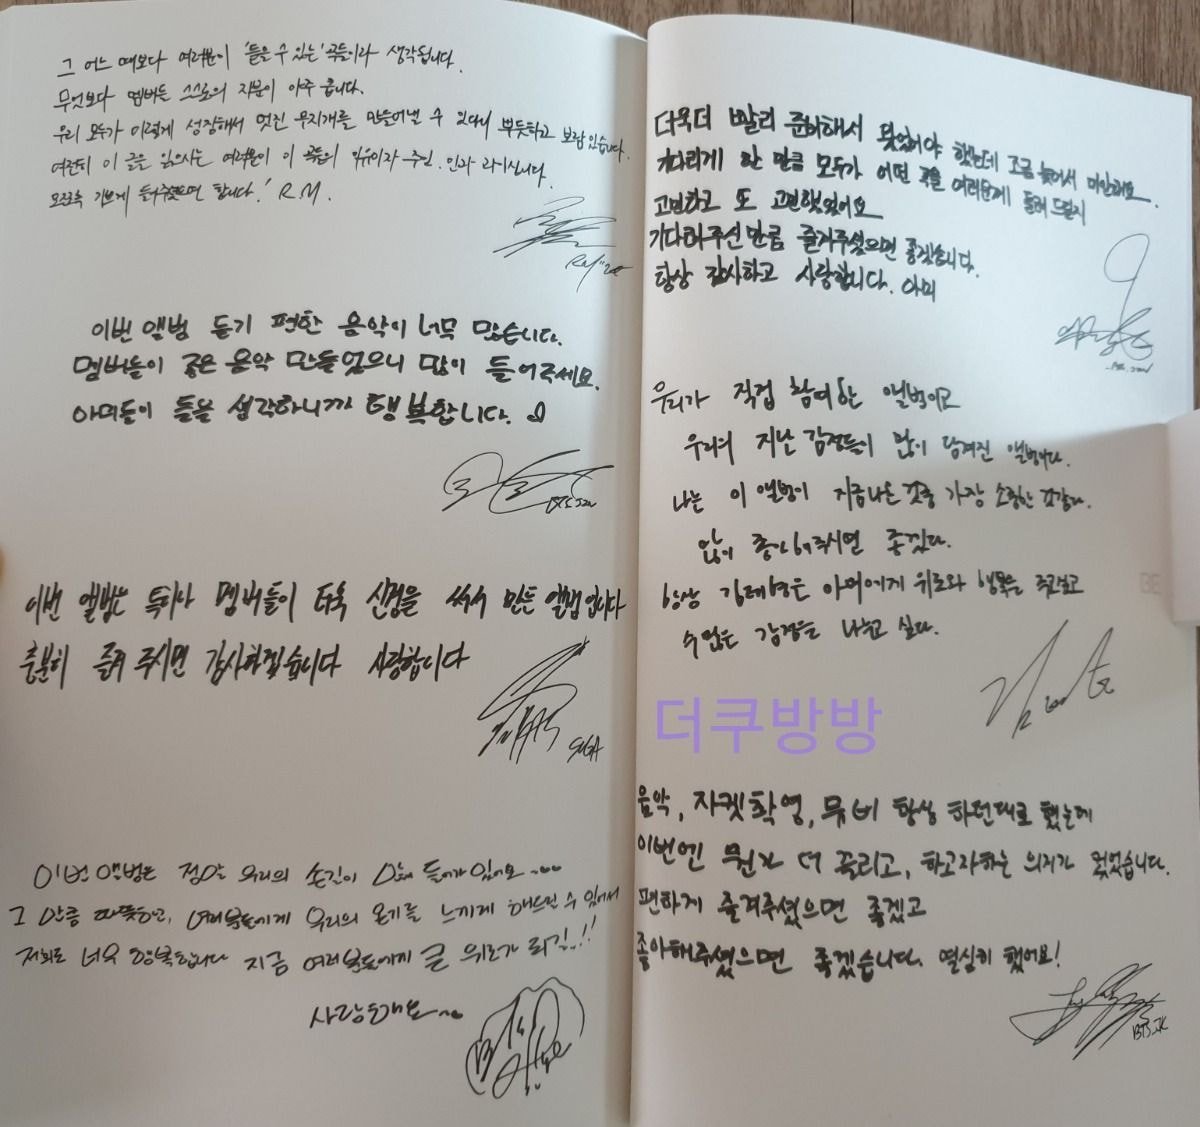 그 어느 때보다 여러분이 '들을 수 있는' 곡들이라 생각됩니다.
무엇보다 멤버들 스스로의 지분이 아주 큽니다.
우리 모두가 이렇게 성장해서 멋진 무지개를 만들어낼 수 있다니 뿌듯하고 보람있습니다.
여전히 이 글을 읽으시는 여러분이 이 곡들의 이유이자 주인, 인과 과이십니다.
모쪼록 기쁘게 들어주셨으면 합니다.' R.M.
RM
이번 앨범 듣기 편한 음악이 너무 많습니다.
멤버들이 좋은 음악 만들었으니 많이 들어주세요.
아미들이 들을 생각하니까 행복합니다.
BTS JIN
이번 앨범은 특히나 멤버들이 더욱 신경을 써서 만든 앨범입니다
충분히 즐겨 주시면 감사하겠습니다 사랑합니다
SUGA
이번 앨범은 정말 우리의 손길이 많이 들어가있어요~~~
그 만큼 따뜻하고, 여러분들에게 우리의 온기를 느끼게 해드릴 수 있어서
저희도 너무 행복합니다 지금 여러분들에게 큰 위로가 되길..!!
사랑해요~~
더욱더 빨리 준비해서 왔었어야 했는데 조금 늦어서 미안해요.
기다리게 한 만큼 모두가 어떤 곡을 여러분께 들려 드릴지
고민하고 또 고민했었어요
기다려주신만큼 즐겨주셨으면 좋겠습니다.
항상 감사하고 사랑합니다. 아미
우리가 직접 참여한 앨범이고
우리의 지난 감정들이 많이 담겨진 앨범이다.
나는 이 앨범이 지금나온 것중 가장 소중한 것같다.
많이 좋아해주시면 좋겠다.
항상 김태형은 아미에게 위로와 행복을 주고싶고
수많은 감정을 나누고 싶다.
더쿠방방
음악, 자켓촬영, 뮤비 항상 하던대로 했는데
이번엔 뭔가 더 끌리고, 하고자하는 의지가 컸었습니다.
편하게 즐겨주셨으면 좋겠고
좋아해주셨으면 좋겠습니다. 열심히 했어요!
BTS JK
BE